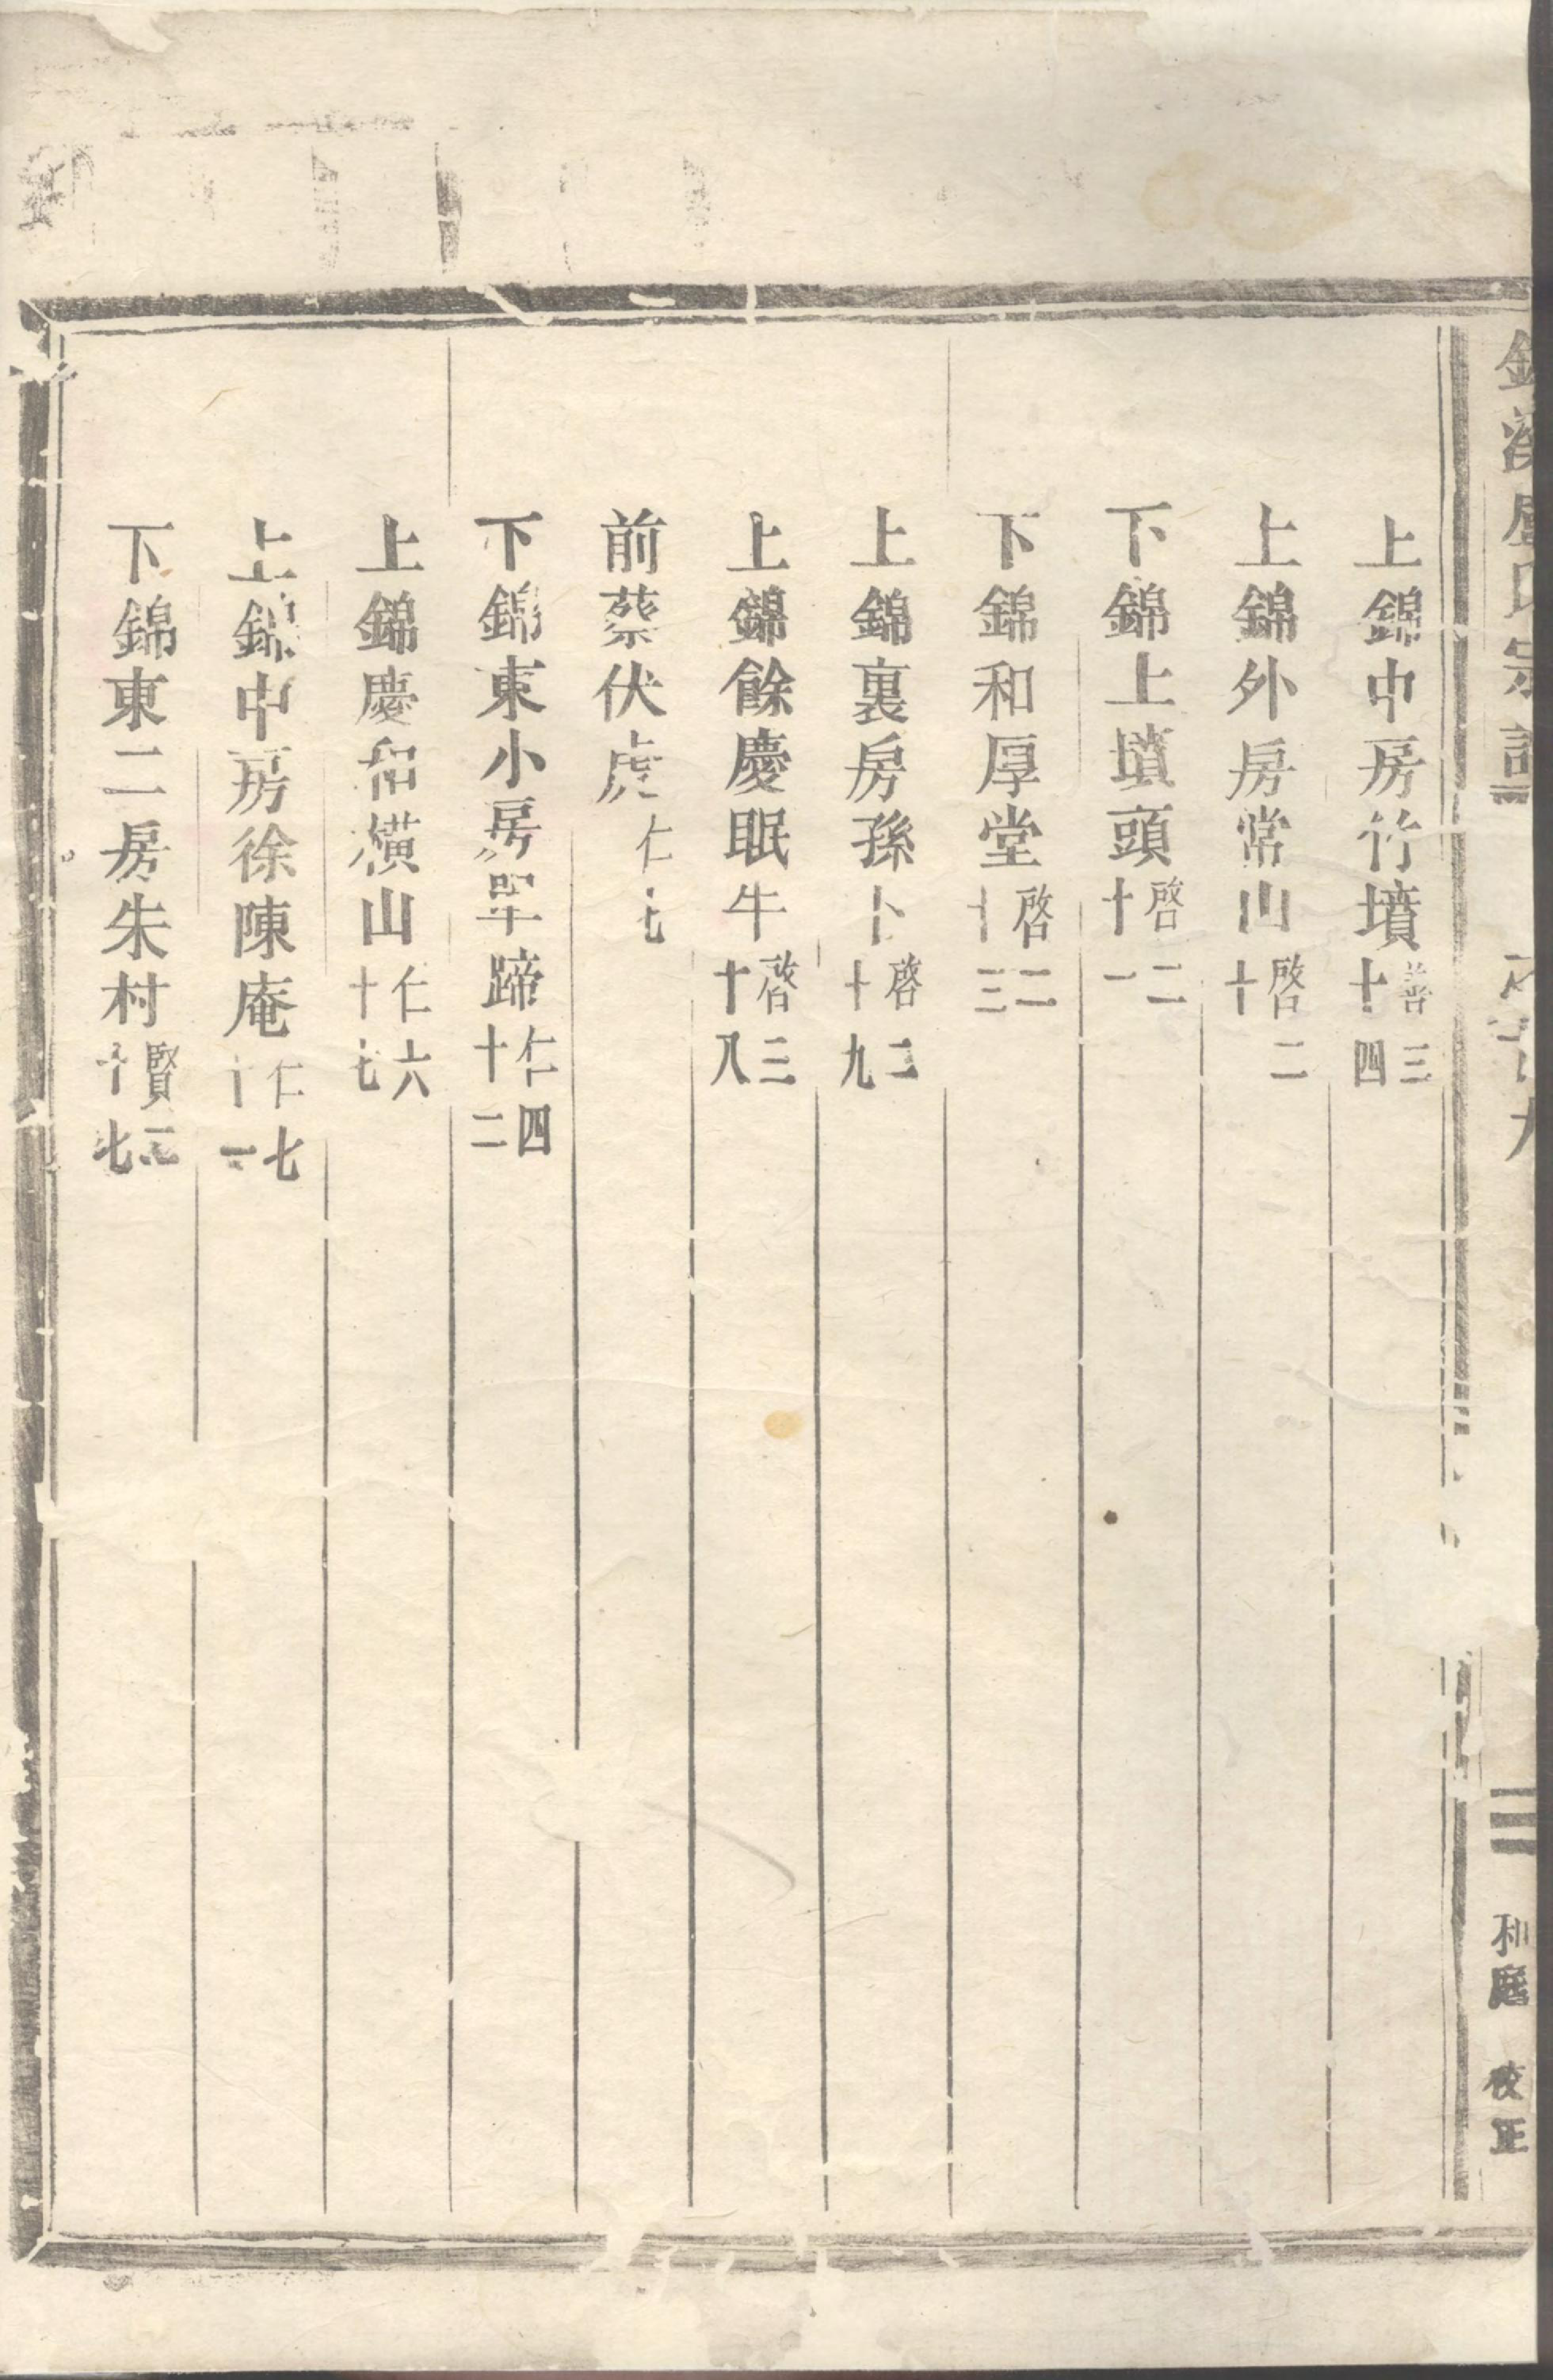 錦溪盧氏宗譜 九 三 和庭 校正
上錦中房竹墳 善三十四
上錦外房常山 啓二十
下錦上墳頭 啓二十一
下錦和厚堂 啓二十三
上錦裏房孫卜 啓二十九
上錦餘慶眠牛 啓三十八
前蔡伏虎 仁七
下錦東小房單蹄 仁四十二
上錦慶和橫山 仁六十七
上錦中房徐陳庵 仁七十一
下錦東二房朱村 賢三十七